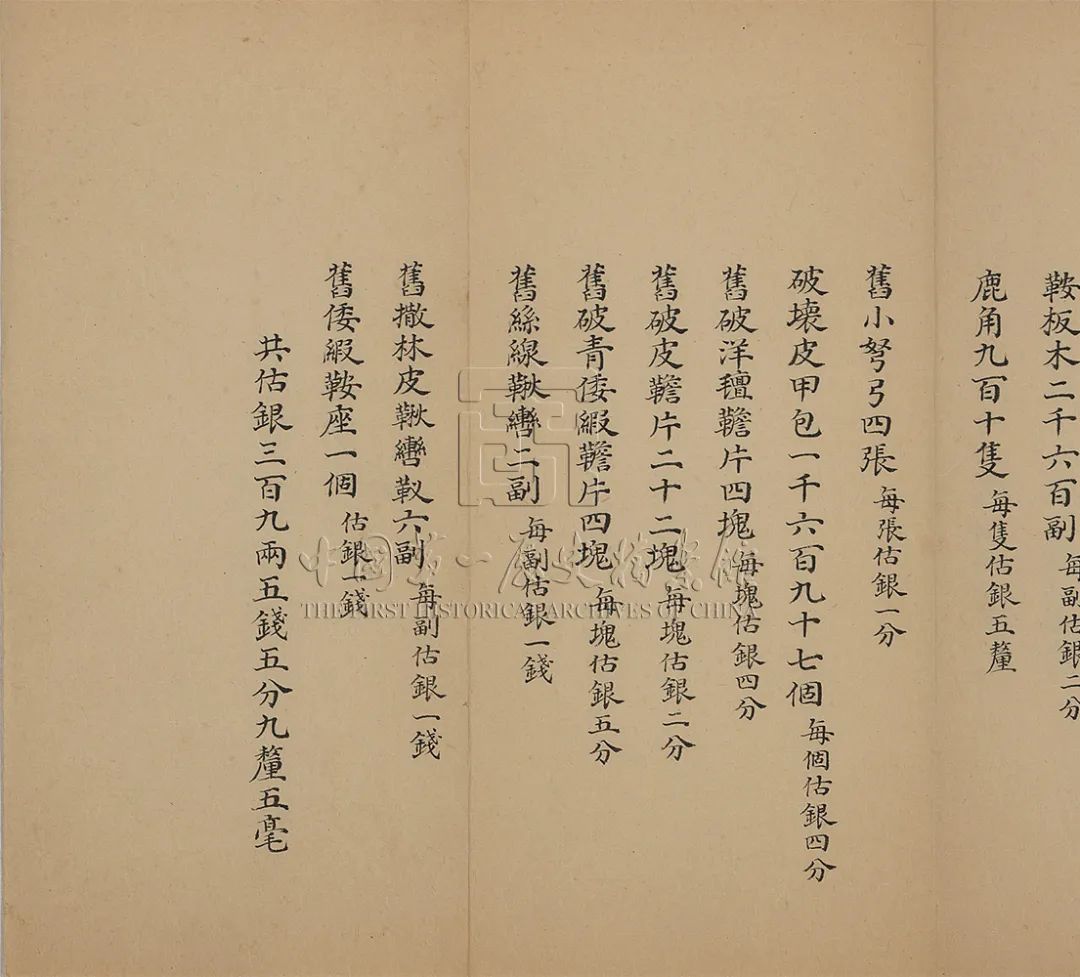 鞍板木二千六百副 每副估銀二分
鹿角九百十隻 每隻估銀五釐
舊小弩弓四張 每張估銀一分
破壞皮甲包一千六百九十七個 每個估銀四分
舊破洋氊韂片四塊 每塊估銀四分
舊破皮韂片二十二塊 每塊估銀二分
舊破青倭緞韂片四塊 每塊估銀五分
舊絲線鞦轡二副 每副估銀一錢
舊撒林皮鞦轡靫六副 每副估銀一錢
舊倭緞鞍座一個 估銀一錢
共估銀三百九兩五錢五分九釐五毫
中國第一歷史檔案館
THE FIRST HISTORICAL ARCHIVES OF CHINA